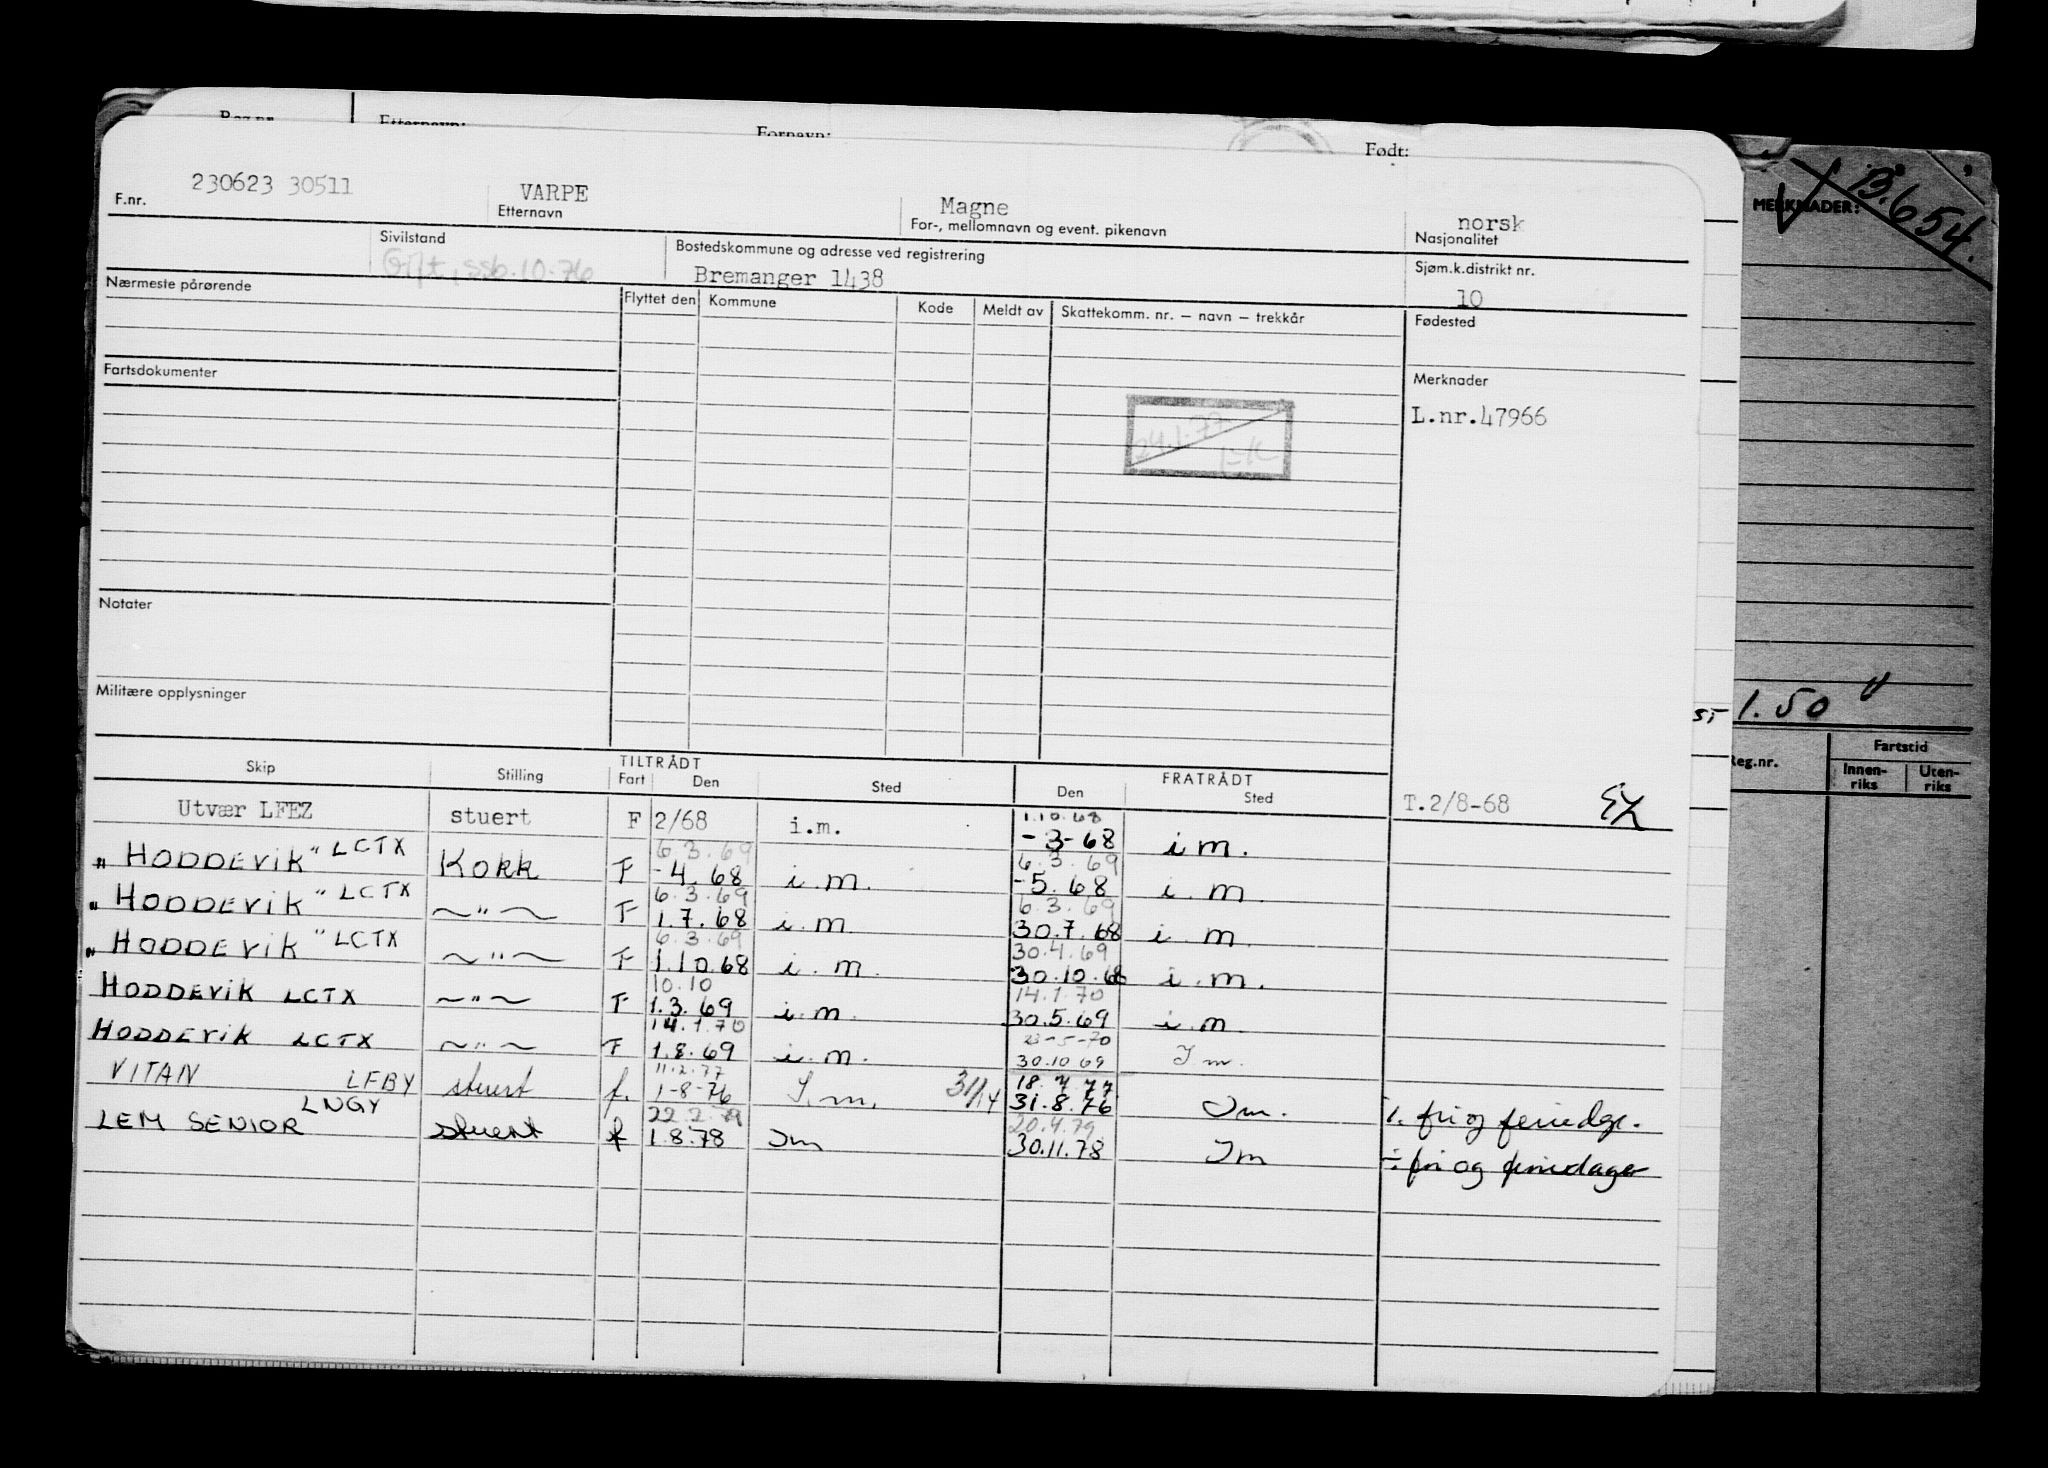 Reg.nr. Etternavn: Fornavn: Født:
F.nr. 230623 30511 VARPE Etternavn Magne For-, mellomnavn og event. pikenavn norsk Nasjonalitet
Sivilstand Gift, ssb.10.76 Bostedskommune og adresse ved registrering Bremanger 1438 Sjøm.k.distrikt nr. 10
Nærmeste pårørende Flyttet den Kommune Kode Meldt av Skattekomm. nr. – navn – trekkår Fødested
Fartsdokumenter Merknader
L.nr.47966
24.1.77
Notater
Militære opplysninger
TILTRÅDT FRATRÅDT
Skip Stilling Fart Den Sted Den Sted
T.2/8-68
1.10.68
Utvær LFEZ stuert F 2/68 i.m. -3-68 i m.
6.3.69 6.3.69
„HODDEVIK" LCTX Kokk F -4.68 i.m. -5.68 i.m.
6.3.69 6.3.69
„HODDEVIK" LCTX ~"~ F 1.7.68 i.m 30.7.68 i.m.
6.3.69 30.4.69
„HODDEVIK" LCTX ~"~ F 1.10.68 i.m. 30.10.68 i.m.
10.10 14.1.70
HODDEVIK LCTX ~"~ F 1.3.69 i.m. 30.5.69 i.m.
14.1.70 -5-70
HODDEVIK LCTX ~"~ F 1.8.69 i.m. 30.10 69 I m.
11.2.77 18.7.77
VITAN LFBY stuert f. 1-8-76 I.m. 31.8.76 Im. fri og feriedge.
22.2.79 20.4.79
LEM SENIOR LNGY stuert f 1.8.78 Im 30.11.78 Im ÷ fri og feriedager
MERKNADER:
B.654.
1.50
Reg.nr. Fartstid
Innen-riks Uten-riks